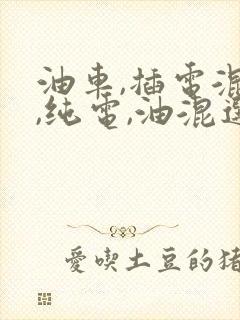 油車,插電混
,純電,油混選
愛喫土豆的豬